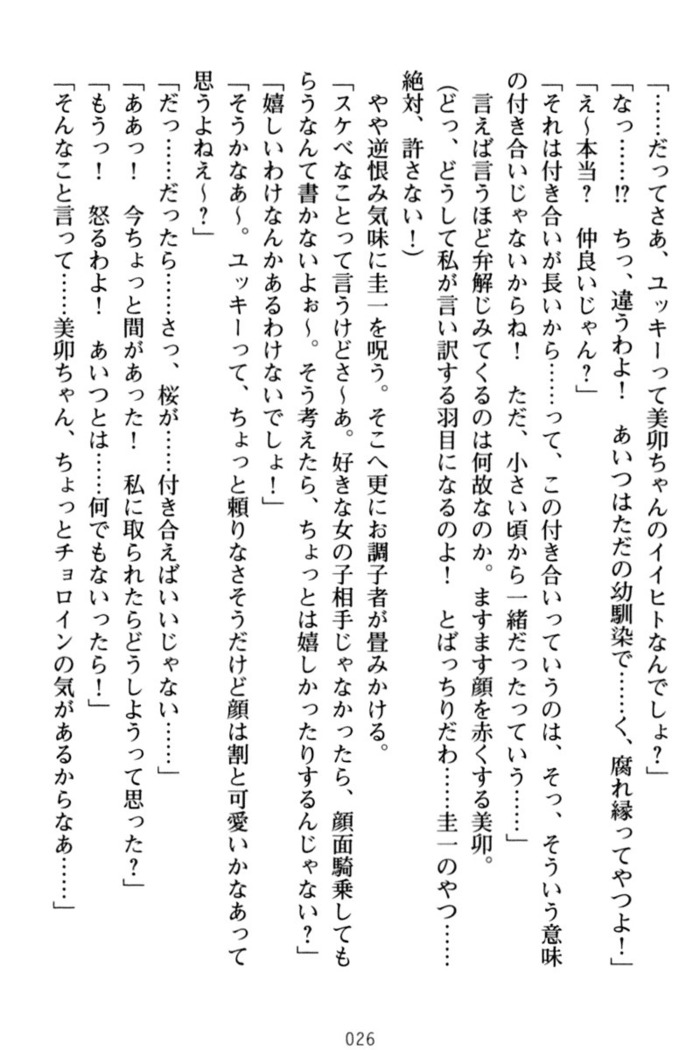 「……だってさあ、ユッキーって美卯ちゃんのイイヒトなんでしょ？」
「なっ……⁉　ちっ、違うわよ！　あいつはただの幼馴染で……く、腐れ縁ってやつよ！」
「え～本当？　仲良いじゃん？」
「それは付き合いが長いから……って、この付き合いっていうのは、そっ、そういう意味
の付き合いじゃないからね！　ただ、小さい頃から一緒だったっていう……」
　言えば言うほど弁解じみてくるのは何故なのか。ますます顔を赤くする美卯。
（どっ、どうして私が言い訳する羽目になるのよ！　とばっちりだわ……圭一のやつ……
絶対、許さない！）
　やや逆恨み気味に圭一を呪う。そこへ更にお調子者が畳みかける。
「スケベなことって言うけどさ～あ。好きな女の子相手じゃなかったら、顔面騎乗しても
らうなんて書かないよぉ～。そう考えたら、ちょっとは嬉しかったりするんじゃない？」
「嬉しいわけなんかあるわけないでしょ！」
「そうかなあ～。ユッキーって、ちょっと頼りなさそうだけど顔は割と可愛いかなあって
思うよねえ～？」
「だっ……だったら……さっ、桜が……付き合えばいいじゃない……」
「ああっ！　今ちょっと間があった！　私に取られたらどうしようって思った？」
「もうっ！　怒るわよ！　あいつとは……何でもないったら！」
「そんなこと言って……美卯ちゃん、ちょっとチョロインの気があるからなあ……」
026